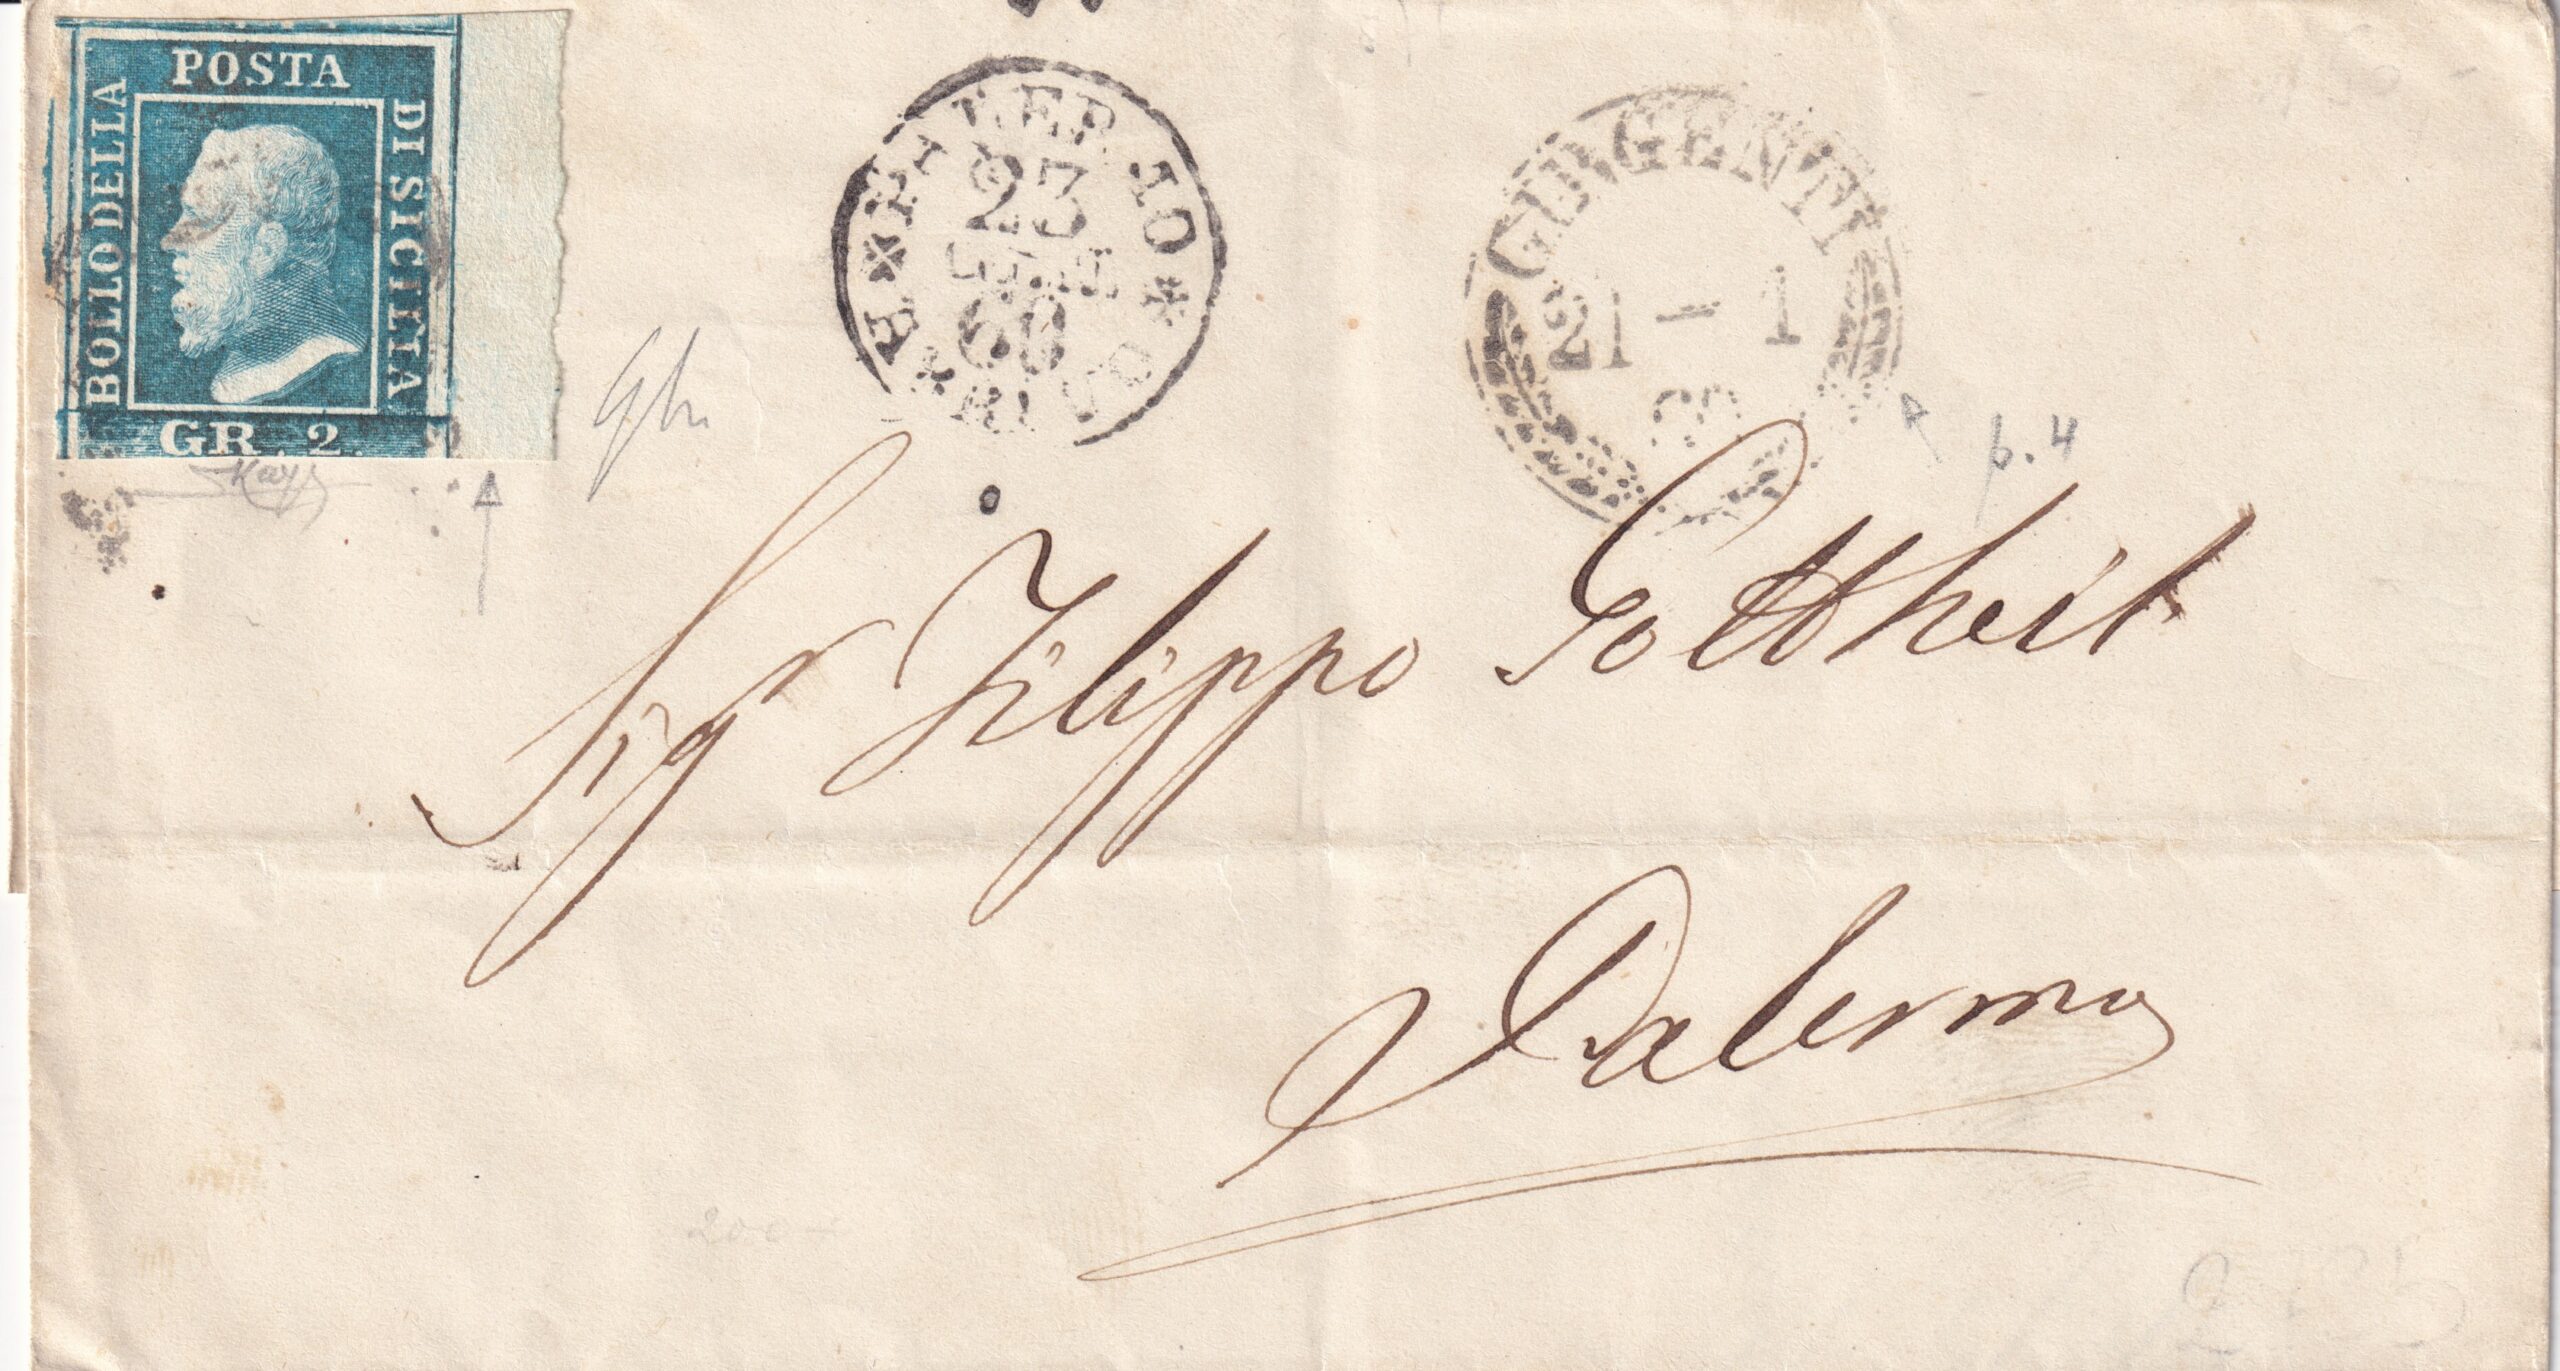 POSTA
BOLLO DELLA
DI SICILIA
GR. 2.
23
60
GIRGENTI
21 - 1
60
p. 4
Sigr Filippo Gottheil
Palermo